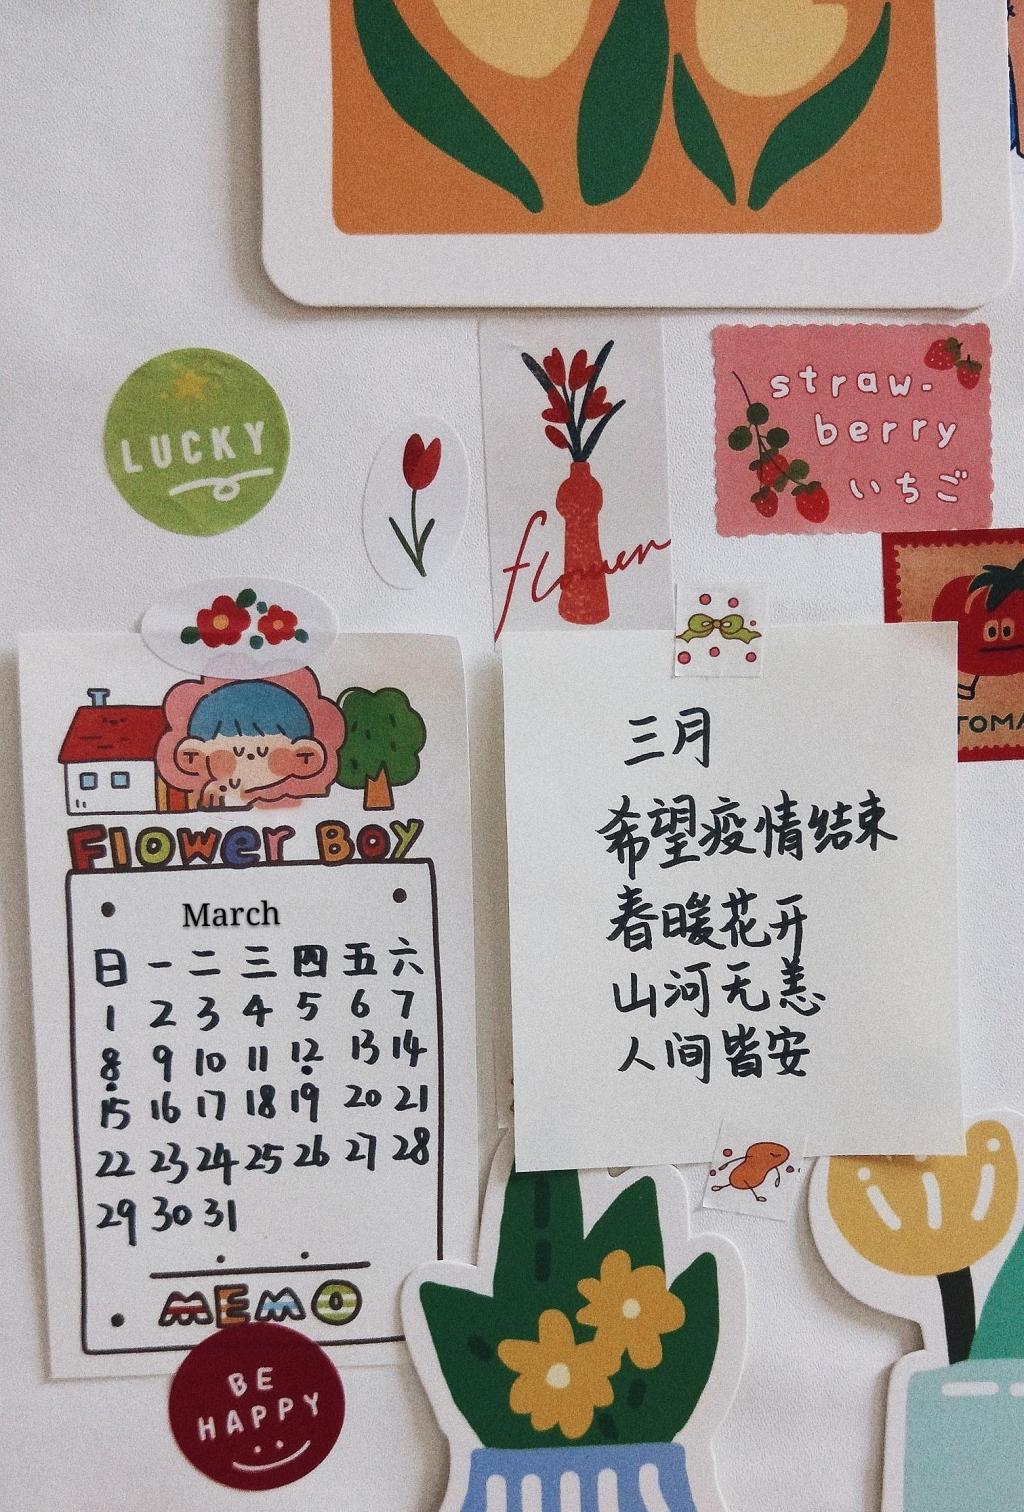 LUCKY
flower
straw-
berry
いちご
TOMA
FLOWer BOY
March
日 一 二 三 四 五 六
1 2 3 4 5 6 7
8 9 10 11 12 13 14
15 16 17 18 19 20 21
22 23 24 25 26 27 28
29 30 31
MEMO
BE
HAPPY
三月
希望疫情结束
春暖花开
山河无恙
人间皆安